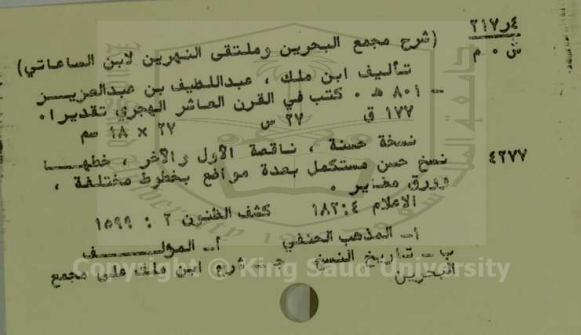 ٢١٧٫٤
ش ٠ م
(شرح مجمع البحرين وملتقى النهرين لابن الساعاتي)
تأليف ابن ملك ، عبداللطيف بن عبدالعزيز
- ٨٠١ هـ ٠ كتب في القرن العاشر الهجري تقديرا ٠
١٧٧ ق ٢٧ س ٢٧ × ١٨ سم
نسخة حسنة ، ناقصة الأول والآخر ، خطها
٤٢٧٧ نسخ حسن مستكمل بعدة مواضع بخطوط مختلفة ،
وورق مغاير ٠
الاعلام ٤ : ١٨٢ كشف الظنون ٢ : ١٥٩٩
أ- المذهب الحنفي أ- المؤلف
ب- تاريخ النسخ ج- شرح ابن ملك على مجمع
البحرين
Copyright © King Saud University